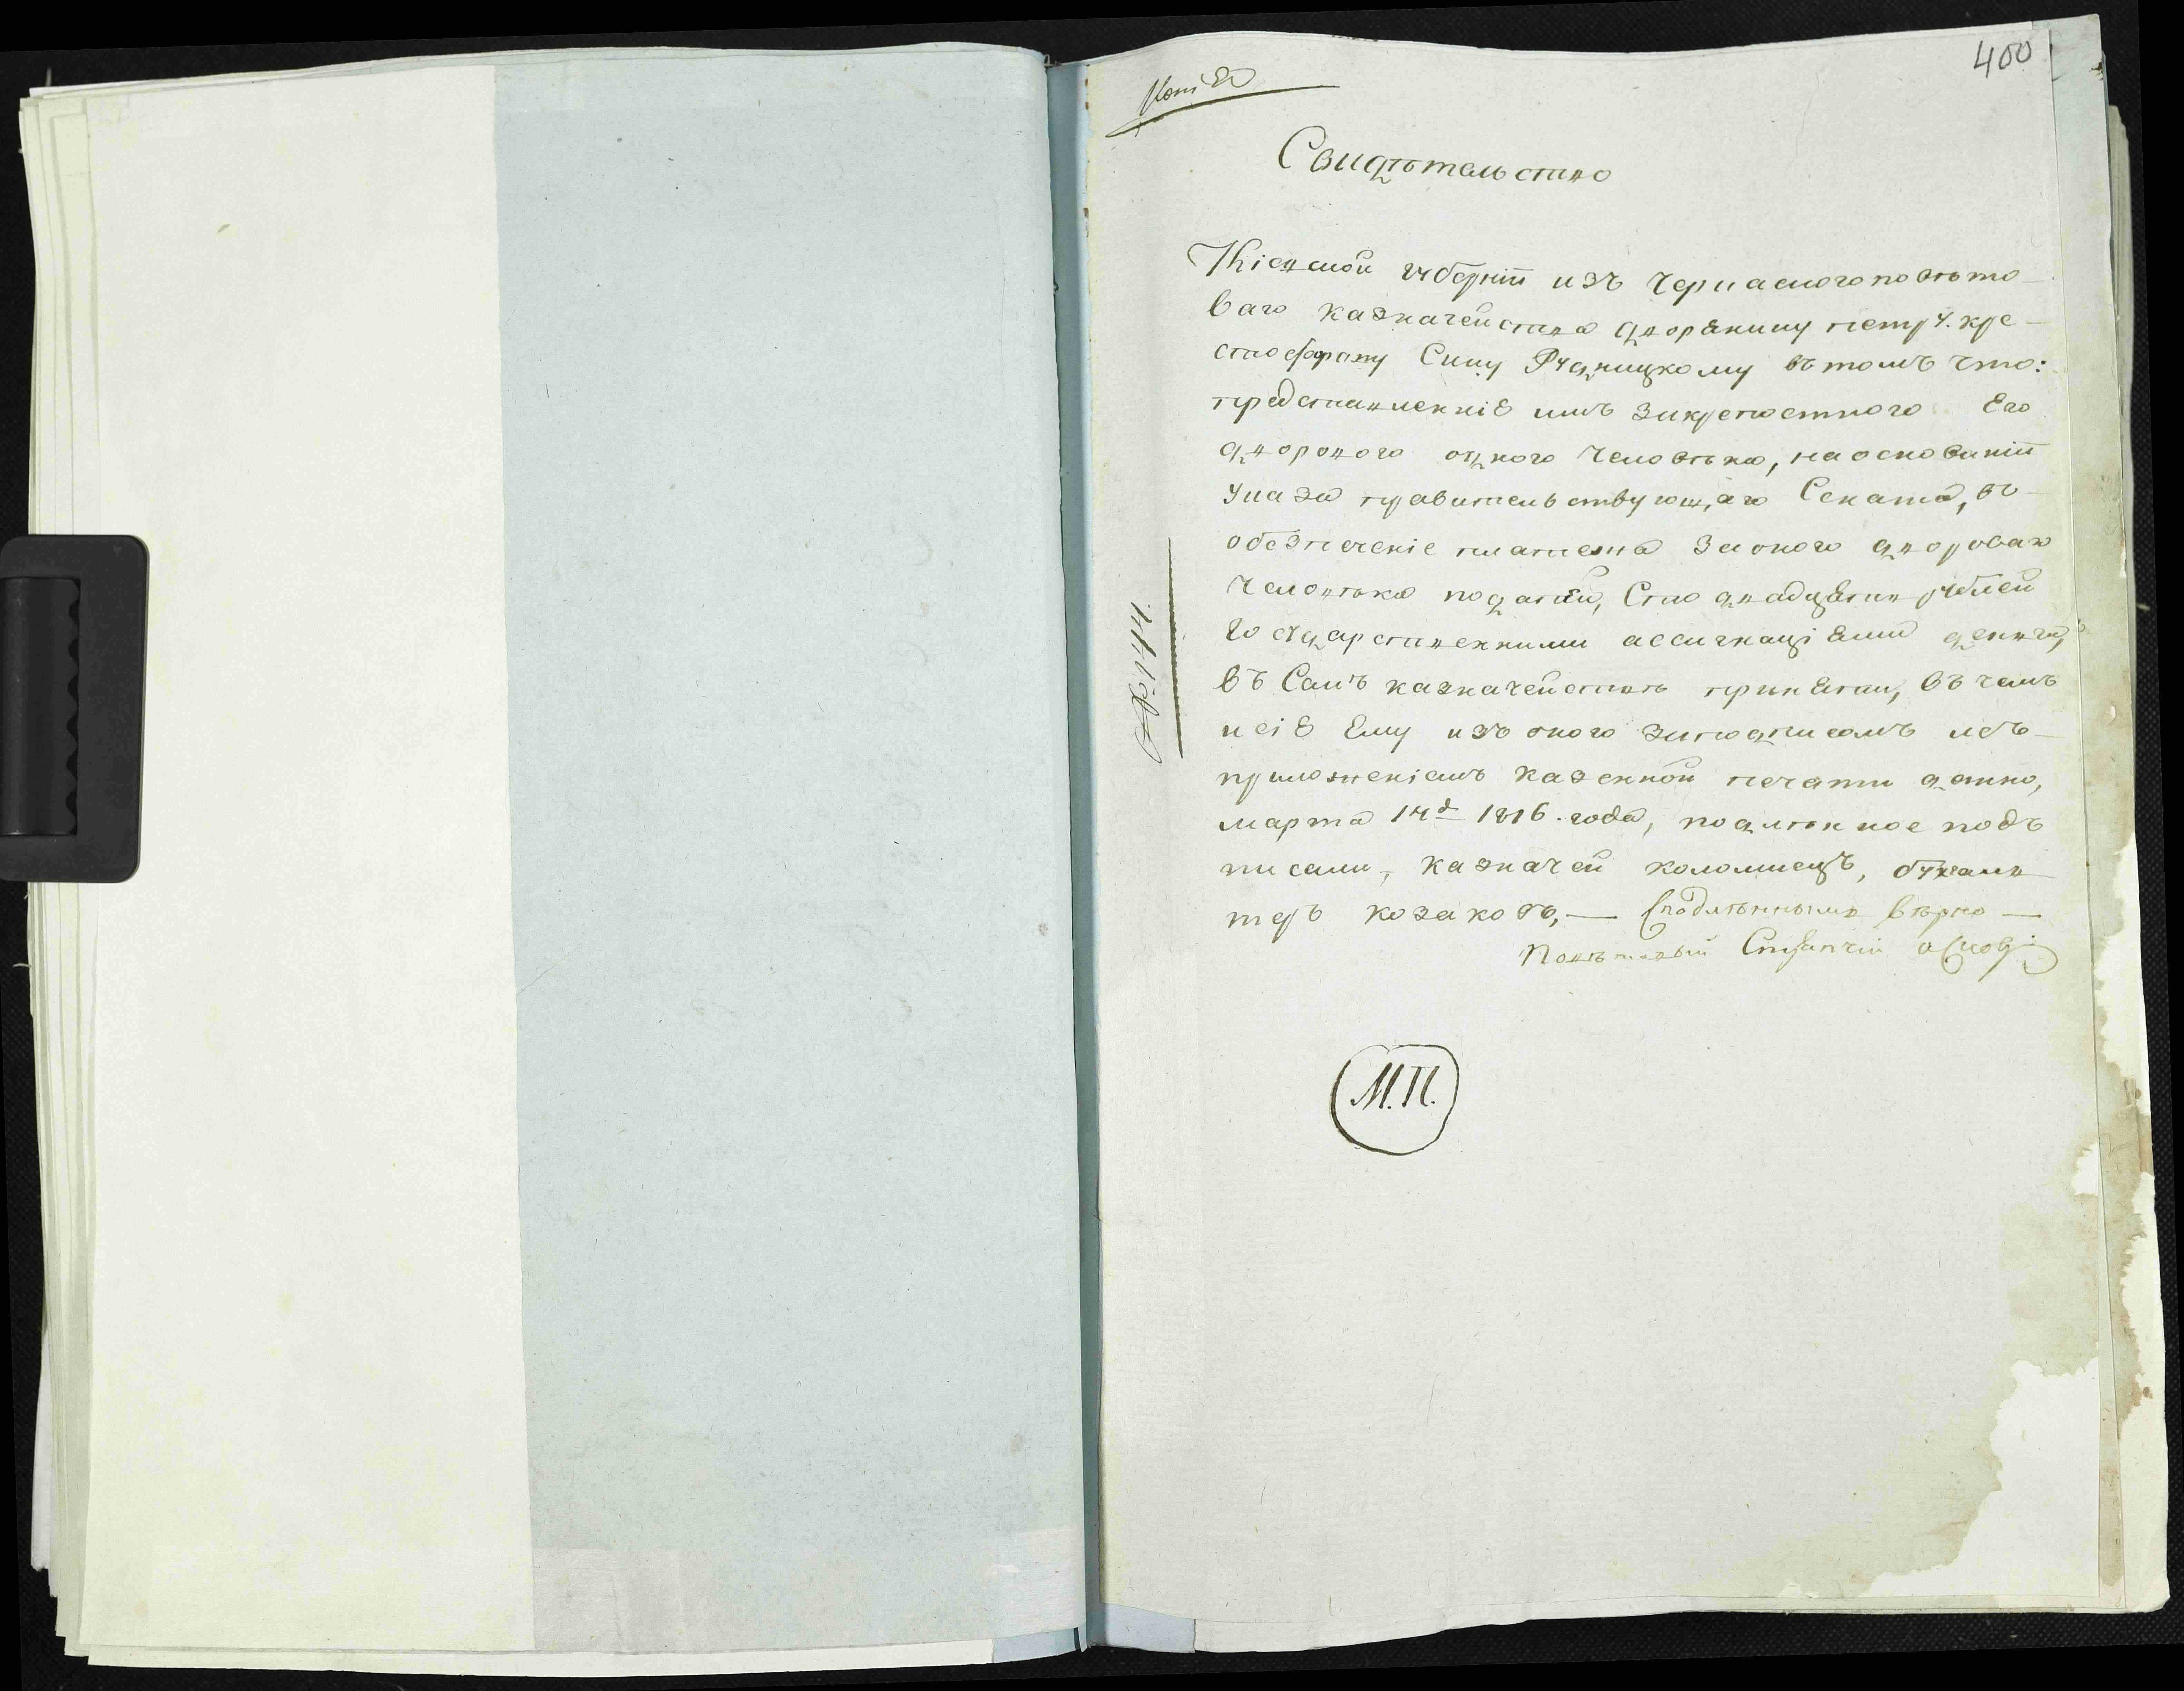 400
Копія
Свидѣтельство
Кіевской губерніи изъ Черкаского повѣто-
ваго казначейства дворянину петру. кри-
стофорову Сину Рудницкому въ томъ что:
представленніе имъ закрепостного Его
дворового одного человѣка, на основаніи
указа правительствующаго Сената, въ
обезпеченіе платежа за оного двороваго
Человѣка податей, Сто двадцять рублей
государственними ассигнаціями денги,
въ Семъ казначействѣ приняти, въ чемъ
и сіе Ему изъ оного заподписомъ исъ-
приложеніемъ казенной печати данно,
марта 14д 1816. года, подленное подъ
писали, казначей коломиецъ, бухгалв
теръ козаковъ, — Сподлѣннымъ вѣрно —
Повѣтовый Стряпчій
№. 144.
М.П.